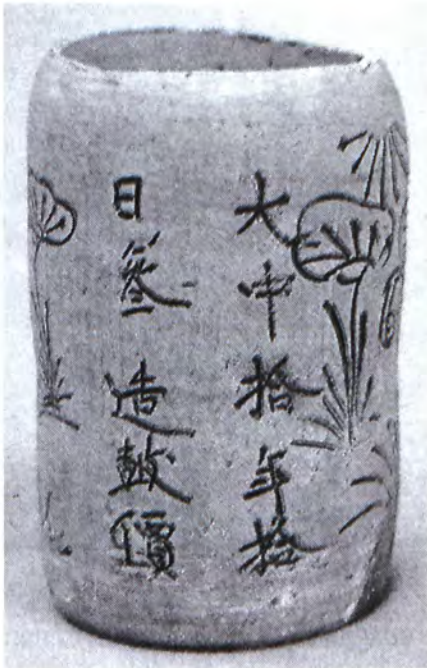 大中拾年拾
日叁造皷價